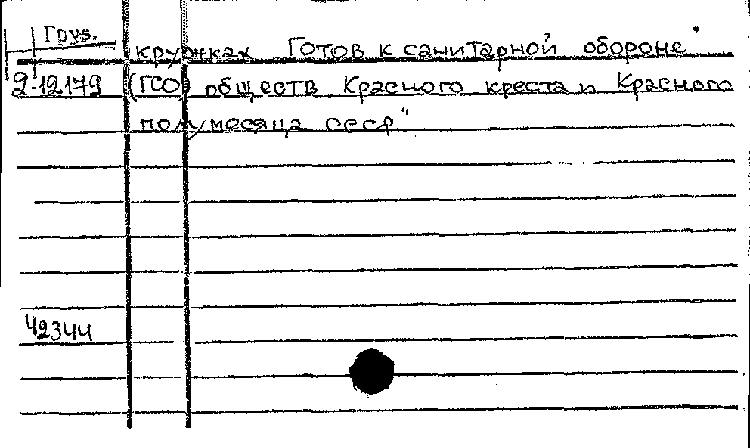 Груз.
кружках Готов к санитарной обороне"
2-12179 (ГСО) обществ Красного креста и Красного
полумесяца СССР"
42344